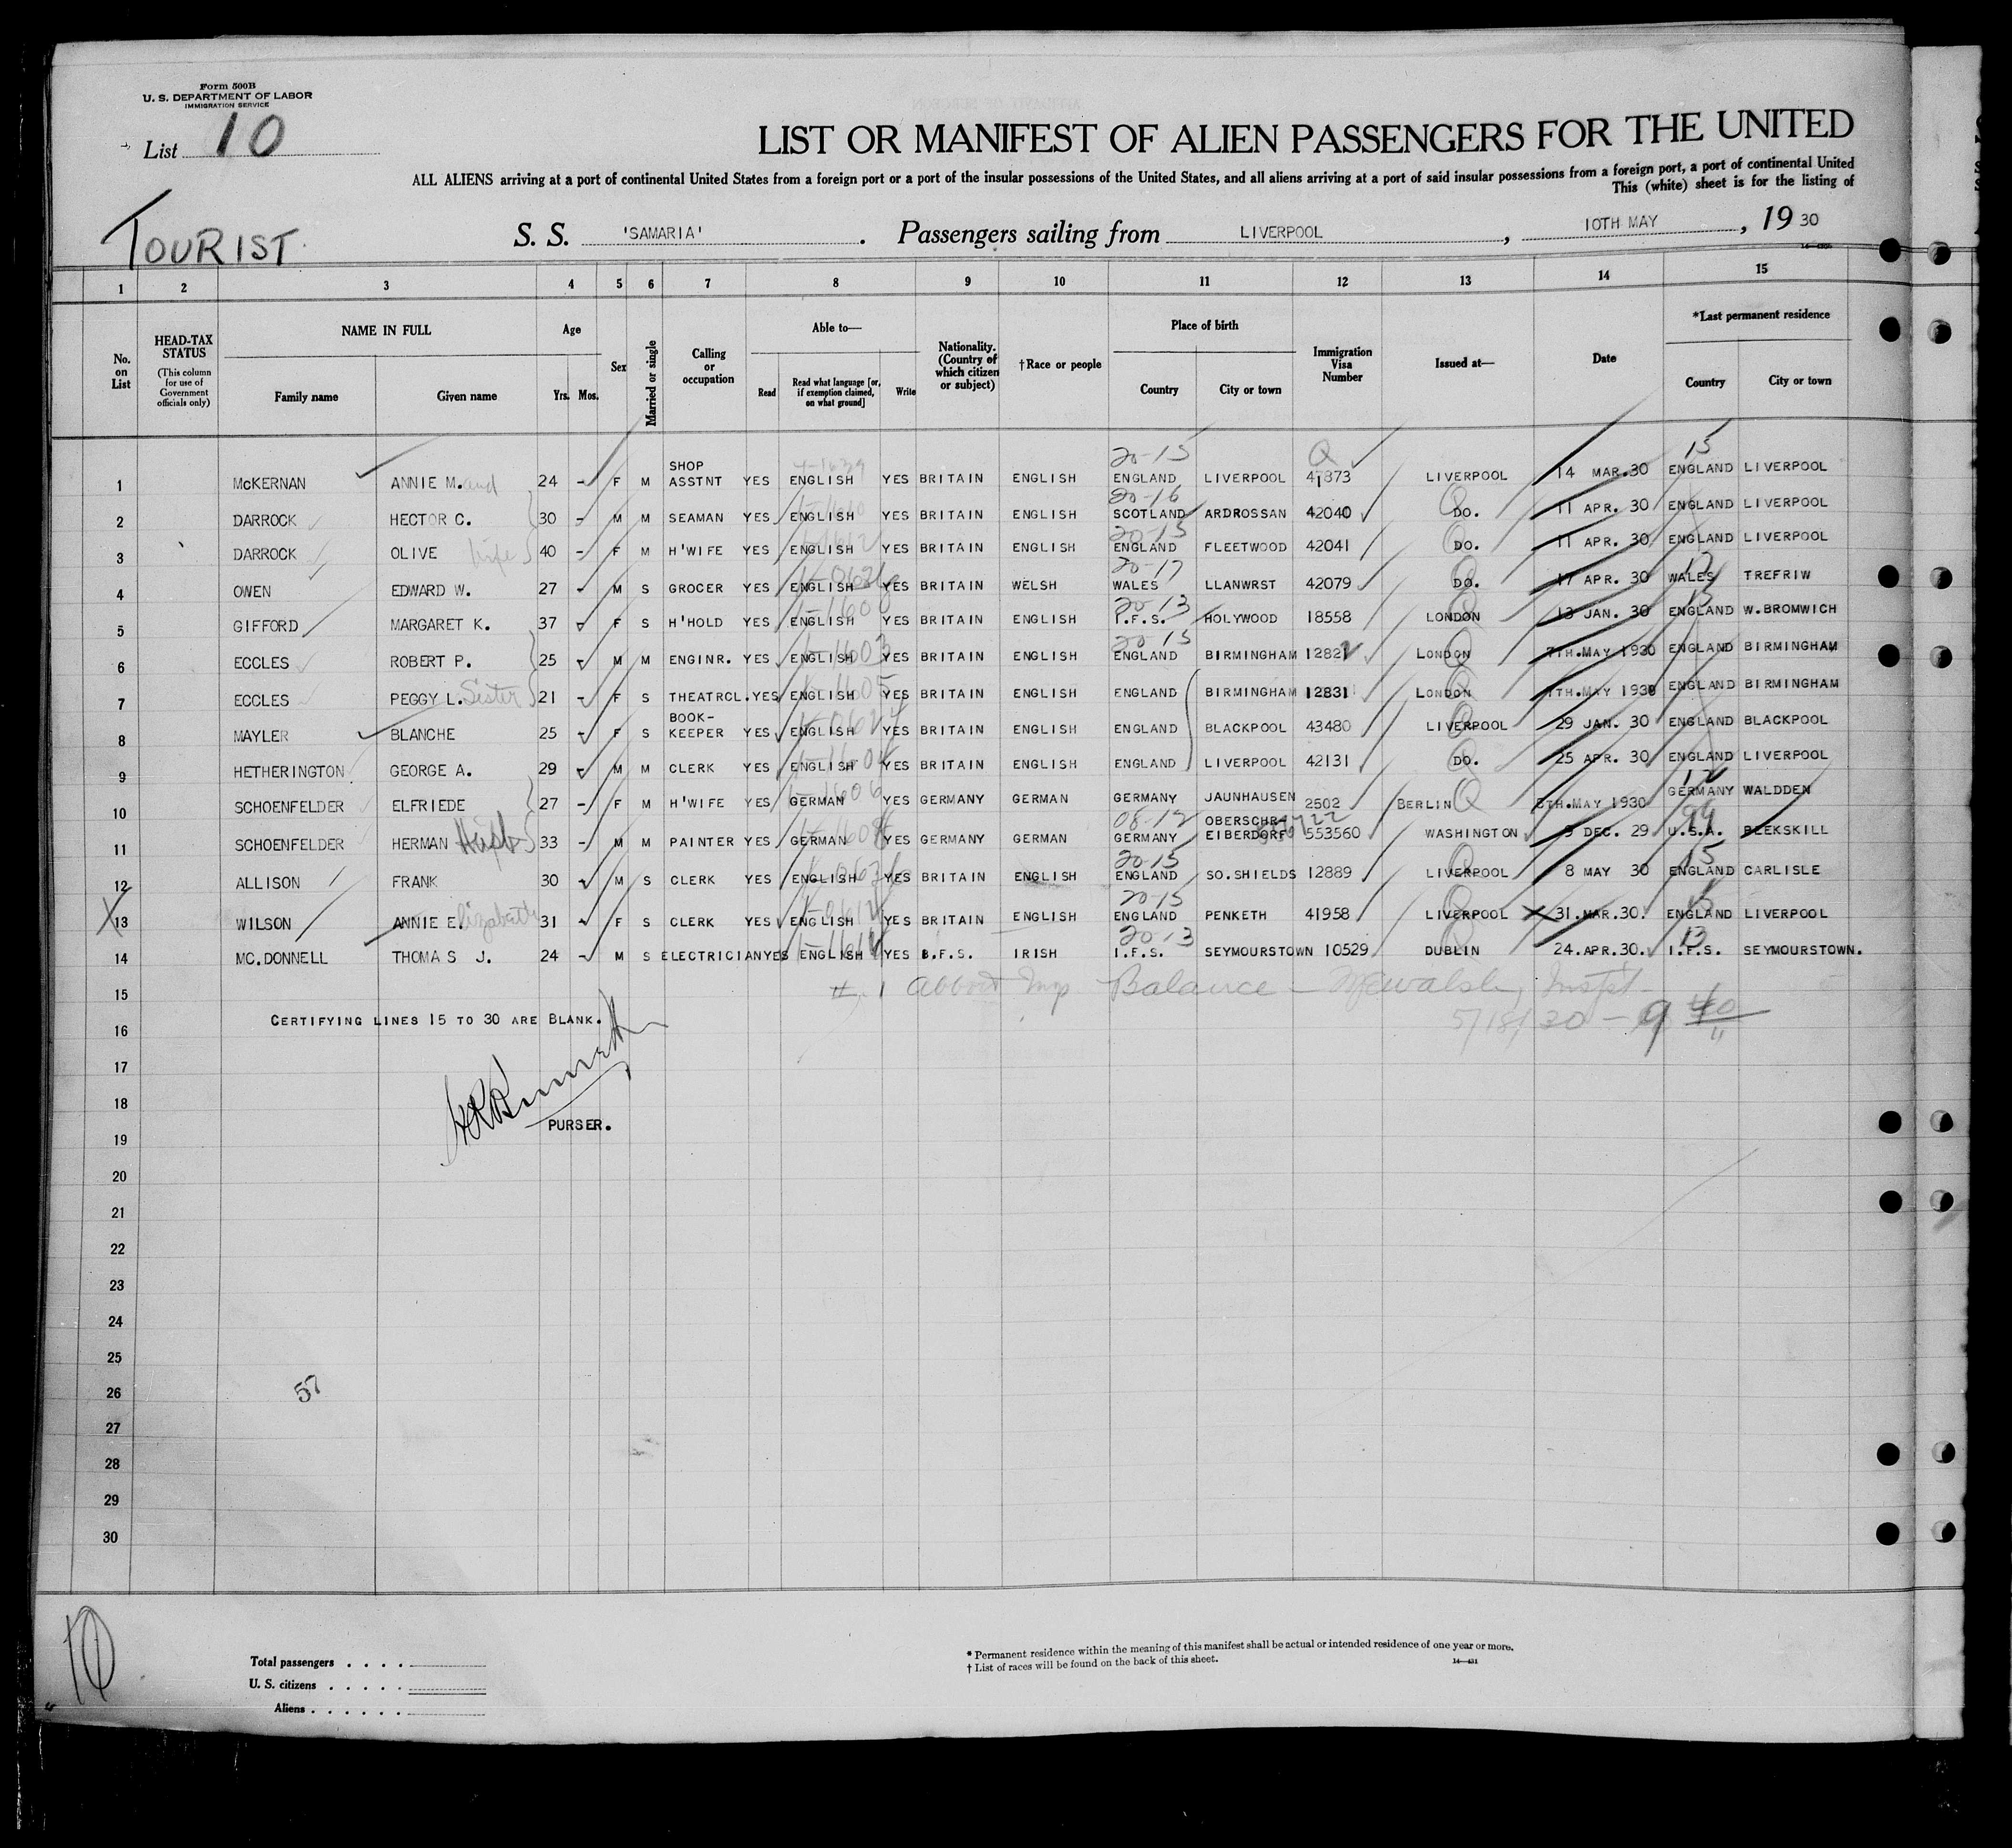 Form 500B
U. S. DEPARTMENT OF LABOR
IMMIGRATION SERVICE
List 10
LIST OR MANIFEST OF ALIEN PASSENGERS FOR THE UNITED
ALL ALIENS arriving at a port of continental United States from a foreign port or a port of the insular possessions of the United States, and all aliens arriving at a port of said insular possessions from a foreign port, a port of continental United
This (white) sheet is for the listing of
TOURIST
S. S. 'SAMARIA' . Passengers sailing from LIVERPOOL , 10TH MAY , 19 30
1 2 3 4 5 6 7 8 9 10 11 12 13 14 15
No. on List
HEAD-TAX STATUS
(This column for use of Government officials only)
NAME IN FULL
Family name Given name
Age
Yrs. Mos.
Sex
Married or single
Calling or occupation
Able to—
Read Read what language [or, if exemption claimed, on what ground] Write
Nationality. (Country of which citizen or subject)
†Race or people
Place of birth
Country City or town
Immigration Visa Number
Issued at—
Date
*Last permanent residence
Country City or town
1 McKERNAN ANNIE M. 24 - F M SHOP ASSTNT YES ENGLISH YES BRITAIN ENGLISH 20-15 ENGLAND LIVERPOOL 41873 LIVERPOOL 14 MAR.30 15 ENGLAND LIVERPOOL
2 DARROCK HECTOR C. 30 - M M SEAMAN YES ENGLISH YES BRITAIN ENGLISH 20-16 SCOTLAND ARDROSSAN 42040 DO. 11 APR. 30 ENGLAND LIVERPOOL
3 DARROCK OLIVE wife 40 - F M H'WIFE YES ENGLISH YES BRITAIN ENGLISH 20-15 ENGLAND FLEETWOOD 42041 DO. 11 APR. 30 ENGLAND LIVERPOOL
4 OWEN EDWARD W. 27 - M S GROCER YES ENGLISH YES BRITAIN WELSH 20-17 WALES LLANWRST 42079 DO. 17 APR. 30 17 WALES TREFRIW
5 GIFFORD MARGARET K. 37 - F S H'HOLD YES ENGLISH YES BRITAIN ENGLISH 20-13 I.F.S. HOLYWOOD 18558 LONDON 13 JAN. 30 15 ENGLAND W.BROMWICH
6 ECCLES ROBERT P. 25 - M M ENGINR. YES ENGLISH YES BRITAIN ENGLISH 20-15 ENGLAND BIRMINGHAM 12822 LONDON 7TH.MAY 1930 ENGLAND BIRMINGHAM
7 ECCLES PEGGY L. Sister 21 - F S THEATRCL. YES ENGLISH YES BRITAIN ENGLISH ENGLAND BIRMINGHAM 12831 LONDON 7TH.MAY 1930 ENGLAND BIRMINGHAM
8 MAYLER BLANCHE 25 - F S BOOK-KEEPER YES ENGLISH YES BRITAIN ENGLISH ENGLAND BLACKPOOL 43480 LIVERPOOL 29 JAN. 30 ENGLAND BLACKPOOL
9 HETHERINGTON GEORGE A. 29 - M M CLERK YES ENGLISH YES BRITAIN ENGLISH ENGLAND LIVERPOOL 42131 DO. 25 APR. 30 ENGLAND LIVERPOOL
10 SCHOENFELDER ELFRIEDE 27 - F M H'WIFE YES GERMAN YES GERMANY GERMAN GERMANY JAUNHAUSEN 2502 BERLIN 8TH.MAY 1930 12 GERMANY WALDDEN
11 SCHOENFELDER HERMAN 33 - M M PAINTER YES GERMAN YES GERMANY GERMAN 08-12 GERMANY OBERSCHR- EIBERDORF 553560 WASHINGTON 9 DEC. 29 99 U.S.A. PEEKSKILL
12 ALLISON FRANK 30 - M S CLERK YES ENGLISH YES BRITAIN ENGLISH 20-15 ENGLAND SO.SHIELDS 12889 LIVERPOOL 8 MAY 30 15 ENGLAND CARLISLE
13 WILSON ANNIE Elizabeth 31 - F S CLERK YES ENGLISH YES BRITAIN ENGLISH 20-15 ENGLAND PENKETH 41958 LIVERPOOL 31.MAR.30. 15 ENGLAND LIVERPOOL
14 MC.DONNELL THOMAS J. 24 - M S ELECTRICIAN YES ENGLISH YES B.F.S. IRISH 20-13 I.F.S. SEYMOURSTOWN 10529 DUBLIN 24.APR.30. 13 I.F.S. SEYMOURSTOWN.
15 # 1 Balance
16 CERTIFYING LINES 15 TO 30 ARE BLANK. 5/18/30 - 9 40
17
18
19 PURSER.
20
21
22
23
24
25
26 57
27
28
29
30
10
Total passengers . . . .
U. S. citizens . . . . .
Aliens . . . . . .
* Permanent residence within the meaning of this manifest shall be actual or intended residence of one year or more.
† List of races will be found on the back of this sheet.
14—431